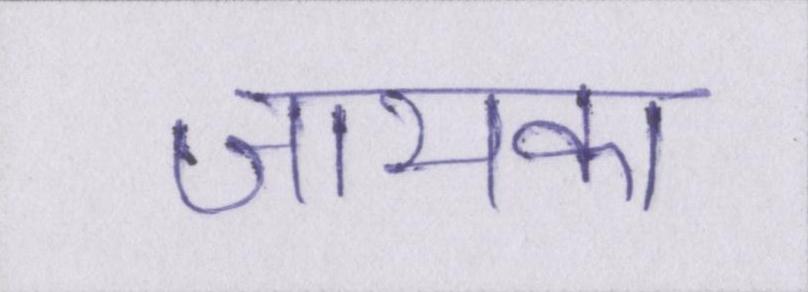 जायका